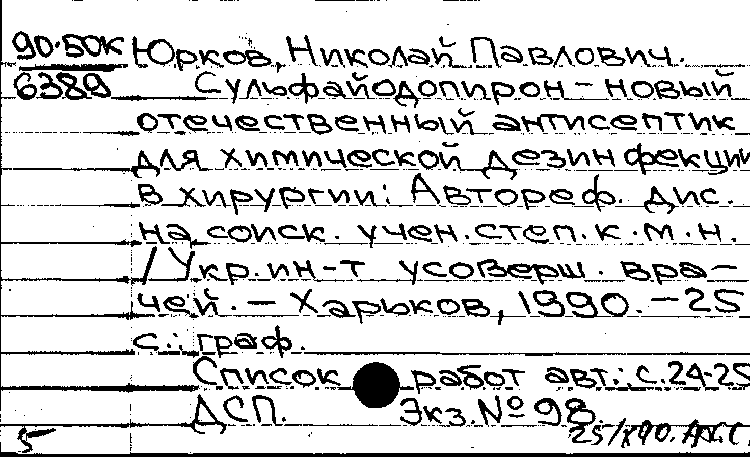 90-50К Юрков, Николай Павлович.
6389 Сульфайодопирон - новый
отечественный антисептик
для химической дезинфекции
в хирургии: Автореф. дис.
на соиск. учен. степ. к. м. н.
/Укр. ин-т усоверш. вра-
чей. - Харьков, 1990. - 25
с.: граф.
Список работ авт.: с. 24-25
ДСП. Экз. № 98
5 25/X90.